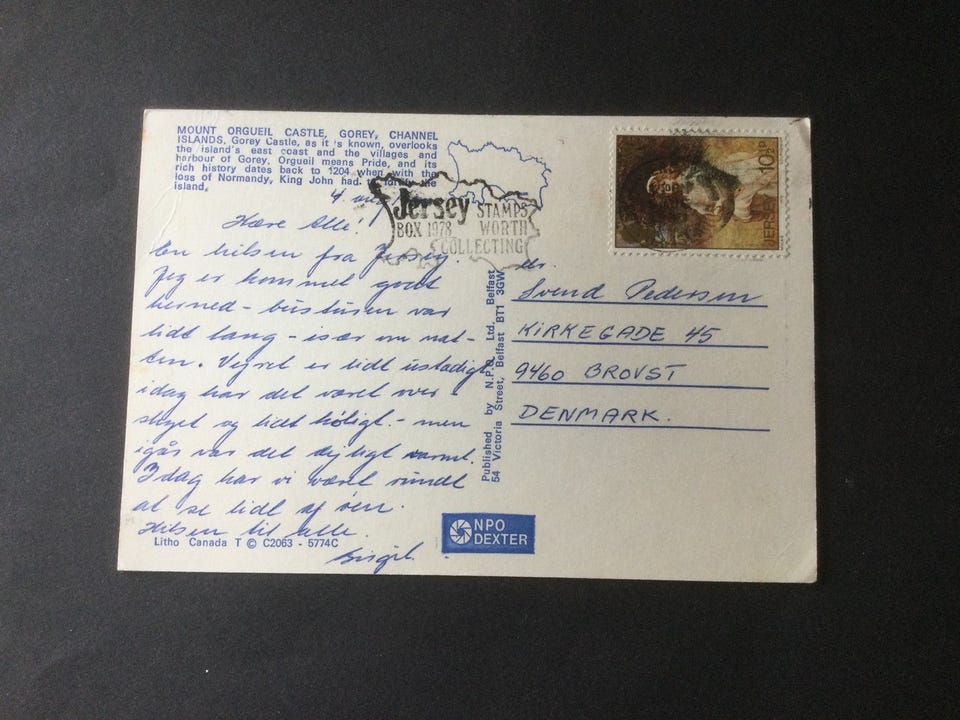 MOUNT ORGUEIL CASTLE, GOREY, CHANNEL
ISLANDS. Gorey Castle, as it is known, overlooks
the island's east coast and the villages and
harbour of Gorey. Orgueil means Pride, and its
rich history dates back to 1204 when with the
loss of Normandy, King John had to fortify the
island.
4 aug
Kære Alle!
En hilsen fra Jersey.
Jeg er kommet godt
herned - busturen var
lidt lang - især om nat-
ten. Vejret er lidt ustadigt
idag har det været over-
skyet og lidt køligt - men
igår var det dejligt varmt.
Idag har vi været rundt
at se lidt af øen.
Hilsen til alle
Birgit.
Litho Canada T © C2063 - 5774C
Jersey STAMPS
BOX 1978 WORTH
COLLECTING
Published by N.P.O. Ltd., Belfast
54 Victoria Street, Belfast BT1 3GW
NPO
DEXTER
10½P
JERSEY
Svend Pedersen
KIRKEGADE 45
9460 BROVST
DENMARK.